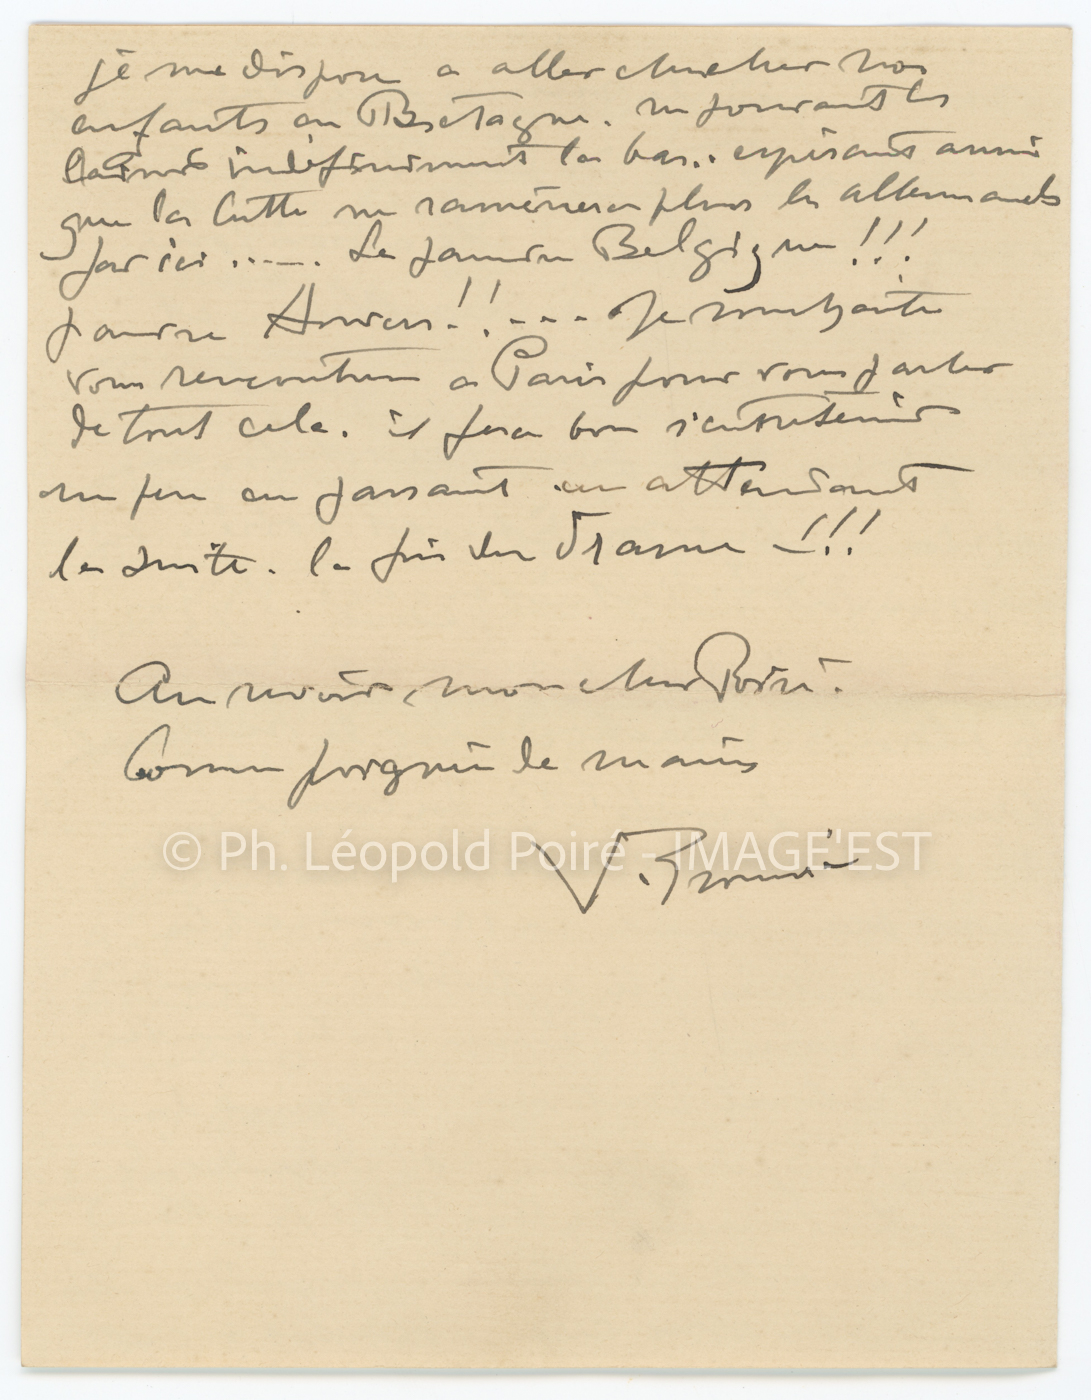 je me dispose a aller chercher nos
enfants en Bretagne. ne pouvant les
laisser indéfiniment la bas.. espérant aussi
que la lutte ne ramènera plus les allemands
par ici ..... La pauvre Belgique !!!
pauvre Anvers !!.... Je souhaite
vous rencontrer a Paris pour vous parler
de tout cela. il fera bon s'entretenir
un peu en passant en attendant
la suite. la fin du Drame -!!!
Au revoir, mon cher Poiré.
Bonne poignée de mains
© Ph. Léopold Poiré - IMAGE'EST
V. Prouvé